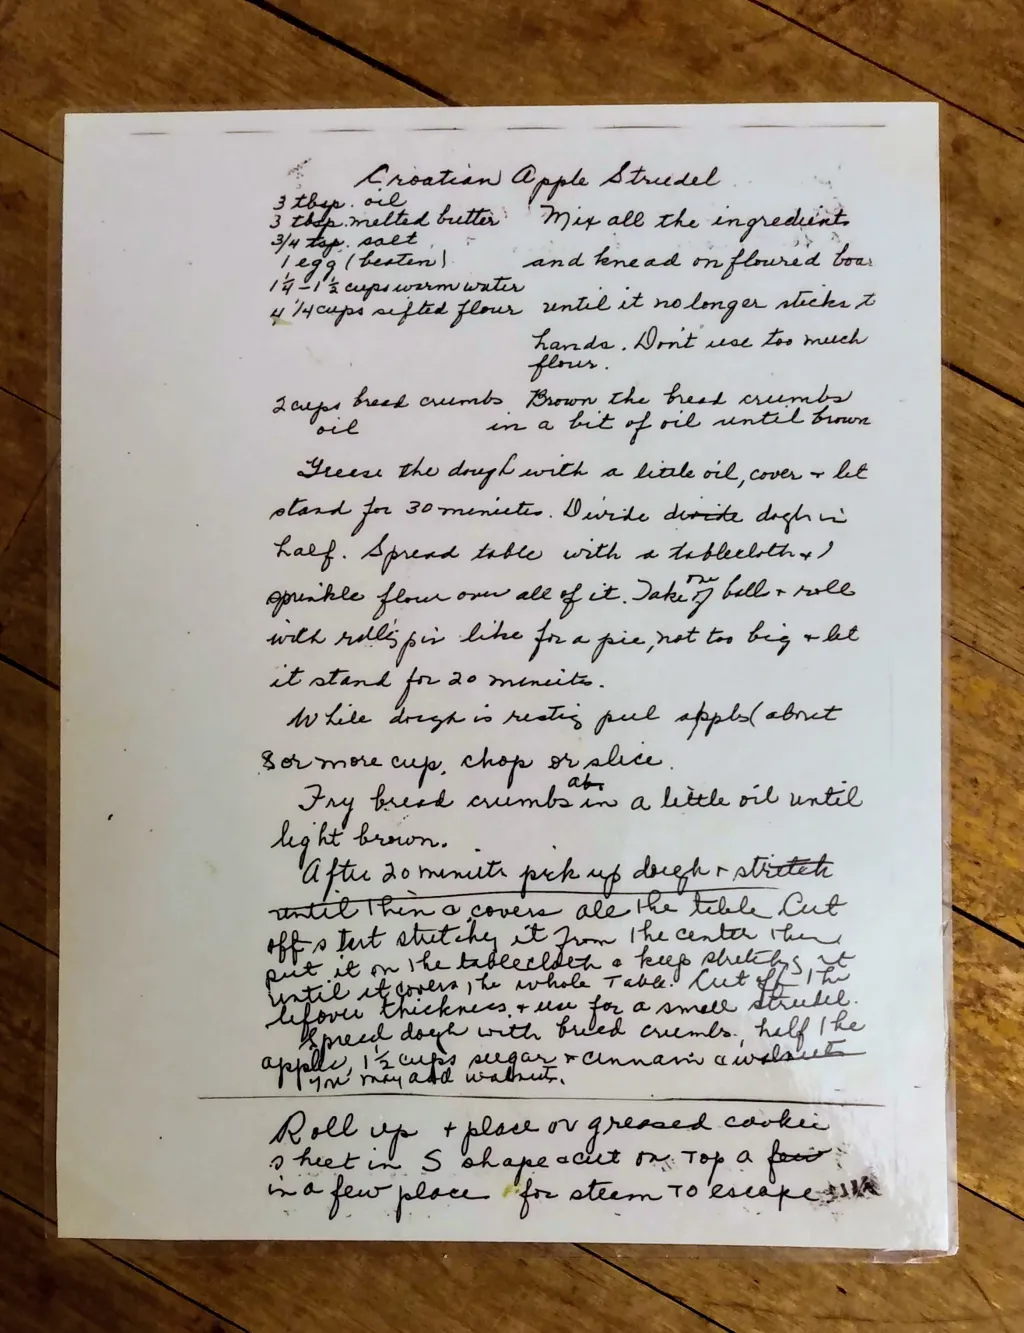 Croatian Apple Strudel
3 tbsp. oil
3 tbsp. melted butter Mix all the ingredients
3/4 tsp. salt
1 egg (beaten) and knead on floured boar
1 1/4 - 1 1/2 cups warm water
4 1/4 cups sifted flour until it no longer sticks t
hands. Don't use too much
flour.
2 cups bread crumbs Brown the bread crumbs
oil in a bit of oil until brown
Grease the dough with a little oil, cover + let
stand for 30 minutes. Divide divide dogh in
half. Spread table with a tablecloth +
sprinkle flour over all of it. Take one of ball + roll
with rollig pin like for a pie, not too big + let
it stand for 20 minuits.
While dough is restig peel apples (about
8 or more cup, chop or slice.
Fry bread crumbs in a little oil until
light brown.
After 20 minuits pick up dough + stretch
until thin & covers all the table Cut
off start stretchg it from the center then
put it on the tablecloth & keep stretchg it
until it covers the whole Table. Cut off the
leftover thickness + use for a small strudel.
Spread dogh with bread crumbs, half the
apple, 1 1/2 cups sugar + cinnamn & walnuts
you may add walnuts.
Roll up + place on greased cookie
sheet in S shape & cut on Top a few
in a few place for steam To escape